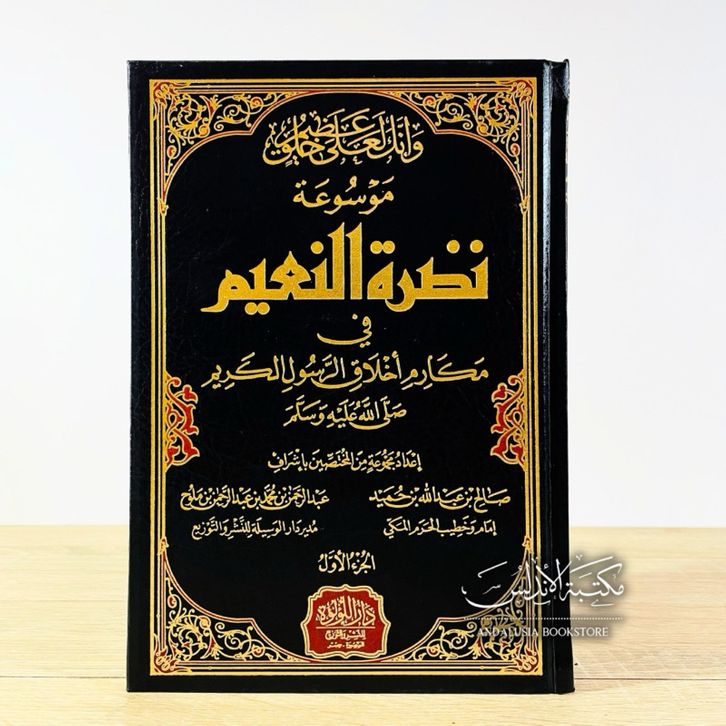 وإنك لعلى خلق عظيم
مَوْسُوعَة
نضرة النعيم
في
مَكَارِمِ أَخْلَاقِ الرَّسُولِ الكَرِيمِ
صَلَّى اللَّهُ عَلَيْهِ وَسَلَّمَ
إعداد مجموعة من المختصين بإشراف
صالح بن عبد الله بن حميد
إمام وخطيب الحرم المكي
عبد الرحمن بن محمد بن عبد الرحمن بن ملوح
مدير دار الوسيلة للنشر والتوزيع
الجزء الأول
دار اللؤلؤة
للنشر والتوزيع
مكتبة الأندلس
ANDALUSIA BOOKSTORE